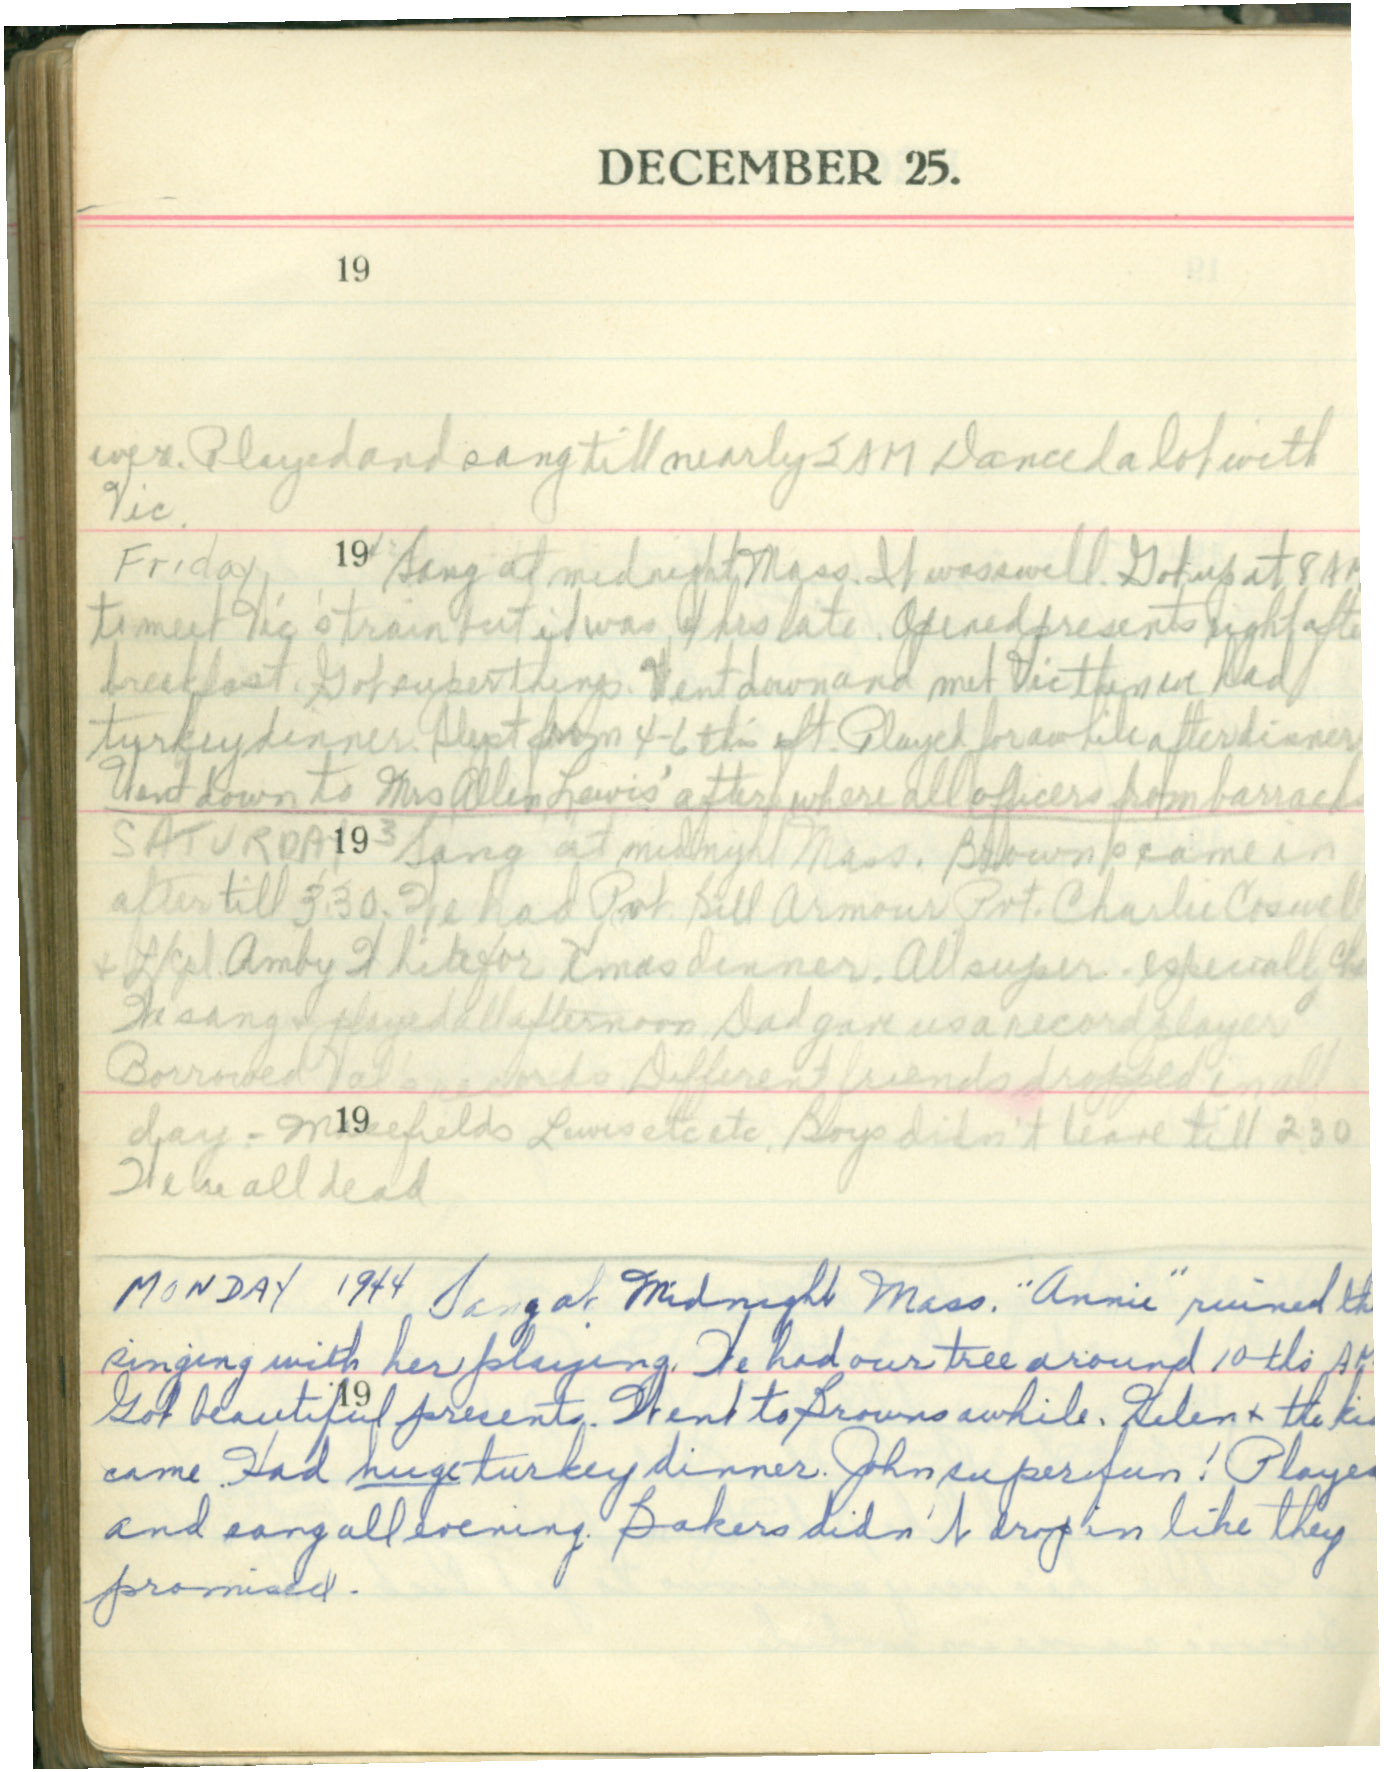 DECEMBER 25.
19
were. Played and sang till nearly 5 AM Danced a lot with
Vic.
Friday, 1942 Sang at midnight Mass. It was swell. Got up at 8 AM
to meet Vic's train but it was hrs late. Opened presents right afte
breakfast. Got super things. Went down and met Vic then we had
turkey dinner. Slept from 4-6 this aft. Played for awhile after dinner
Went down to Mrs Allen Lewis' after where all officers from barracks
SATURDAY 193 Sang at midnight Mass. Browns came in
after till 3:30. We had Pvt. Bill Armour Pvt. Charlie Coswell
& L/Cpl. Amby White for Xmas dinner. All super - especially Cha
We sang & played all afternoon Dad gave us a record player
Borrowed Val's records Different friends dropped in all
19
day - Lewis etc etc. Boys didn't leave till 230
We're all dead
MONDAY 1944 Sang at Midnight Mass. "Annie" ruined th
singing with her playing. We had our tree around 10 this AM
19
Got beautiful presents. Went to Browns awhile. Helen & the kid
came. Had huge turkey dinner. John super fun! Played
and sang all evening. Bakers didn't drop in like they
promised.